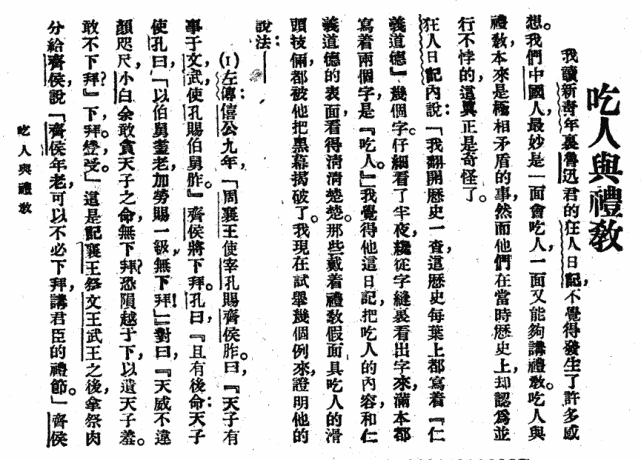 吃人與禮教
我讀新青年裏魯迅君的狂人日記，不覺得發生了許多感
想。我們中國人，最妙是一面會吃人，一面又能夠講禮教。吃人與
禮教，本來是極相矛盾的事，然而他們在當時歷史上，却認爲並
行不悖的，這眞正是奇怪了。
狂人日記內說：「我翻開歷史一查，這歷史每葉上都寫着『仁
義道德』幾個字。仔細看了半夜，纔從字縫裏看出字來，滿本都
寫着兩個字，是『吃人。』」我覺得他這日記，把吃人的內容，和仁
義道德的表面，看得清清楚楚。那些戴着禮教假面具吃人的滑
頭技倆，都被他把黑幕揭破了。我現在試舉幾個例來，證明他的
說法：
(1)左傳僖公九年，「周襄王使宰孔賜齊侯胙。曰，『天子有
事于文武，使孔賜伯舅胙。』齊侯將下拜。孔曰，『且有後命，天子
使孔曰，「以伯舅耋老，加勞賜一級，無下拜！」』對曰，『天威不違
顏咫尺，小白余敢貪天子之命，無下拜？恐隕越于下，以遺天子羞。
敢不下拜？』下，拜，登，受。」這是記襄王祭文王武王之後，拿祭肉
分給齊侯，說「齊侯年老，可以不必下拜，講君臣的禮節。」齊侯
吃人與禮教